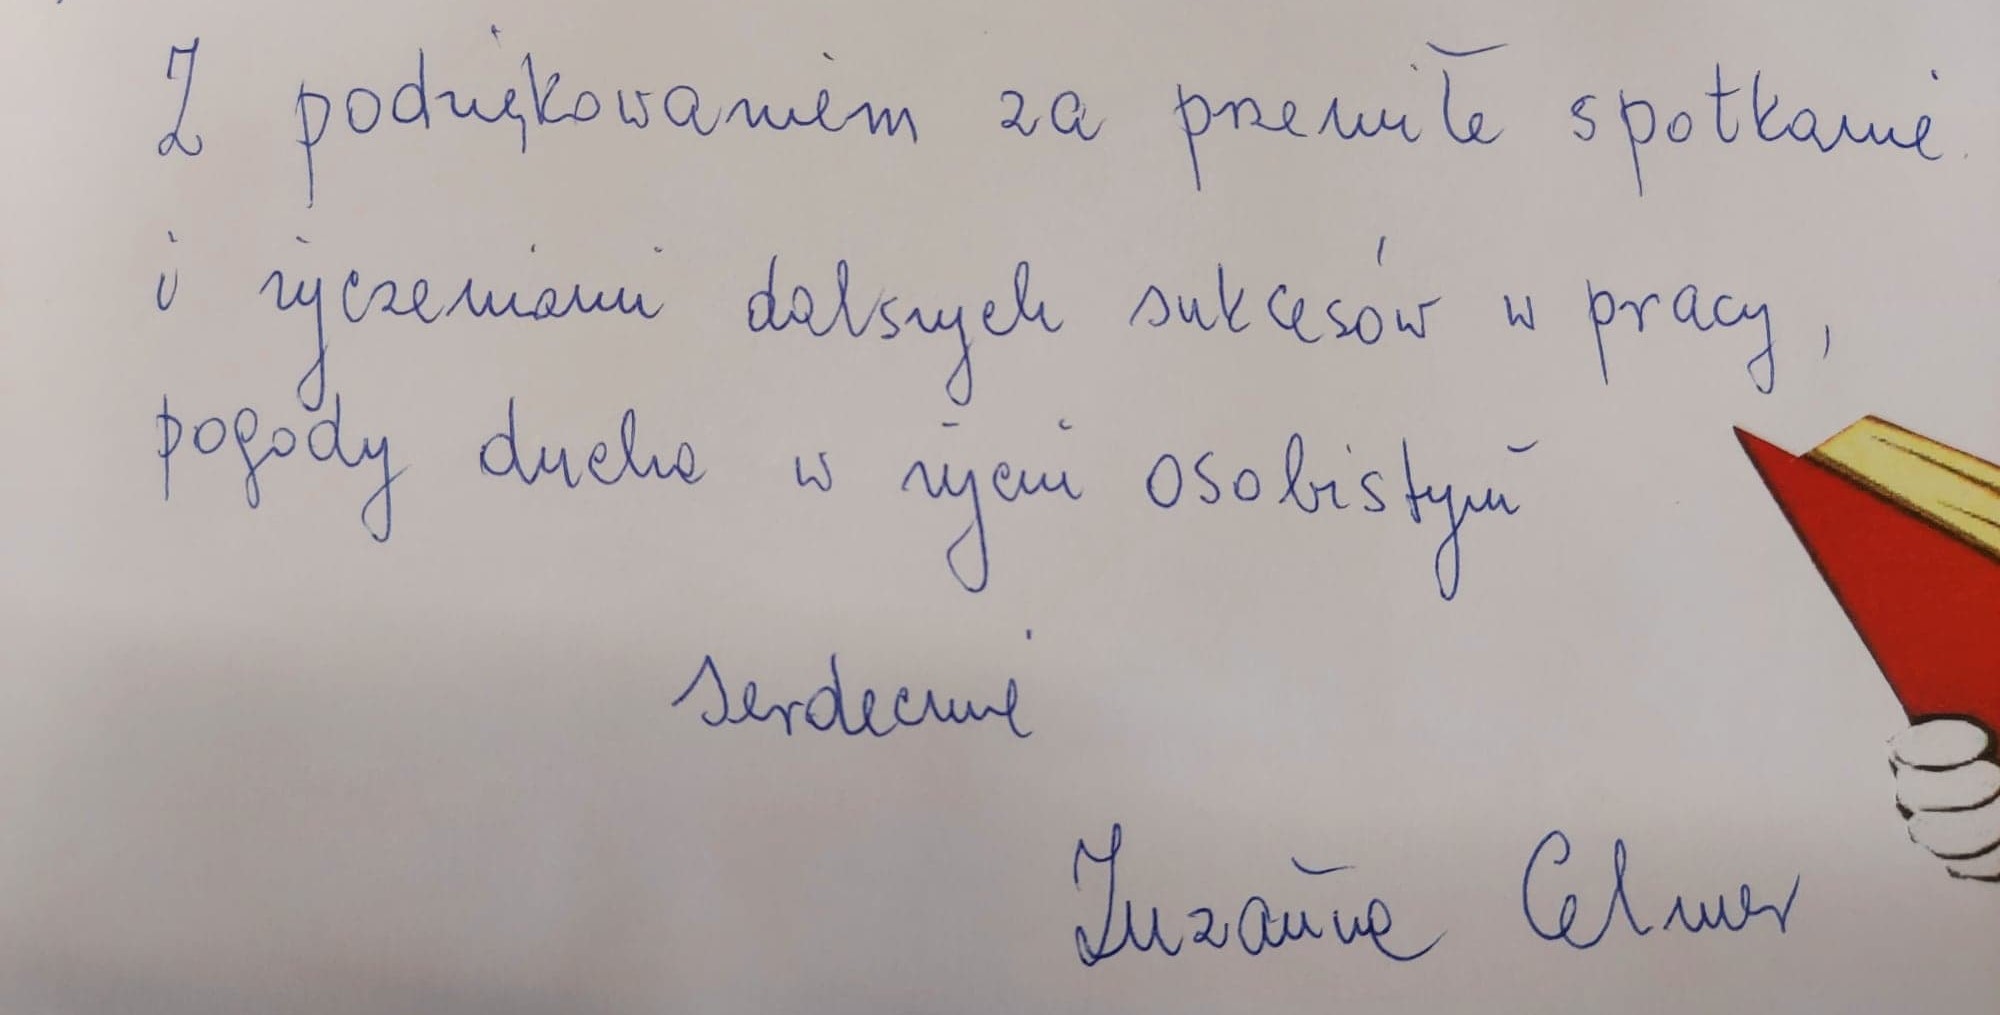 Z podziękowaniem za przemiłe spotkanie
i życzeniami dalszych sukcesów w pracy,
pogody ducha w życiu osobistym
serdecznie
Zuzanna Celmer